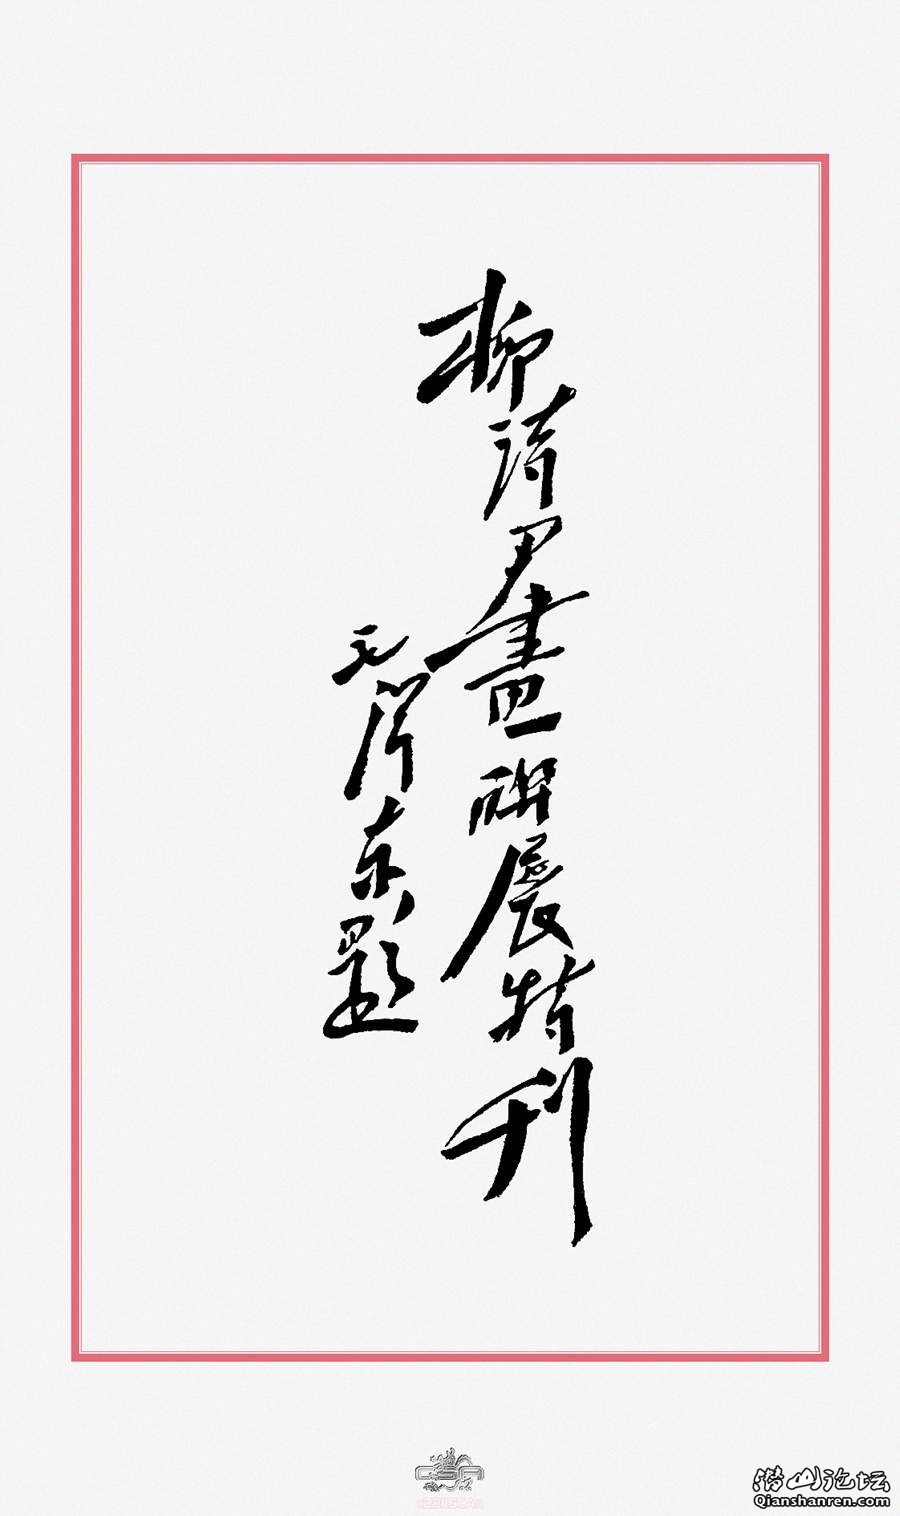 柳詩尹畫聯展特刊
毛澤东題
潜山论坛
Qianshanren.com